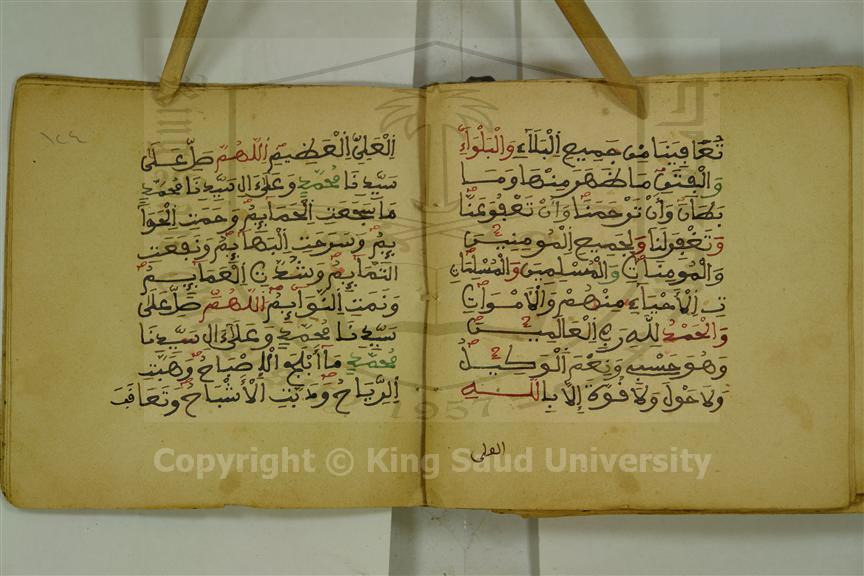 تُعَافِيَنَا مِن جَمِيعِ الْبَلَاءِ وَالْبَلْوَاءِ
وَالْفِتَنِ مَا ظَهَرَ مِنْهَا وَمَا
بَطَنَ وَأَن تَرْحَمَنَا وَأَن تَعْفُوَ عَنَّا
وَتَغْفِرَ لَنَا وَلِجَمِيعِ الْمُومِنِينَ
وَالْمُومِنَاتِ وَالْمُسْلِمِينَ وَالْمُسْلِمَا
تِ الْأَحْيَاءِ مِنْهُمْ وَالْأَمْوَاتِ
وَالْحَمْدُ لِلهِ رَبِّ الْعَالَمِينَ
وَهُوَ حَسْبِي وَنِعْمَ الْوَكِيلُ
وَلَا حَوْلَ وَلَا قُوَّةَ إِلَّا بِاللهِ
العلي
١٢٤
الْعَلِيِّ الْعَظِيمِ اللَّهُمَّ صَلِّ عَلَى
سَيِّدِنَا مُحَمَّدٍ وَعَلَى ءَالِ سَيِّدِنَا مُحَمَّدٍ
مَا سَجَعَتِ الْحَمَايِمُ وَحَمَتِ الْحَوَا
يِمُ وَسَرَحَتِ الْبَهَايِمُ وَنَفَعَتِ
التَّمَايِمُ وَشُدَّتِ الْعَمَايِمُ
وَنَمَتِ النَّوَايِمُ اللَّهُمَّ صَلِّ عَلَى
سَيِّدِنَا مُحَمَّدٍ وَعَلَى ءَالِ سَيِّدِنَا
مُحَمَّدٍ مَا أَبْلَجَ الْإِصْبَاحُ وَهَبَّتِ
الرِّيَاحُ وَدَبَّتِ الْأَشْبَاحُ وَتَعَاقَبَ
1957
Copyright © King Saud University